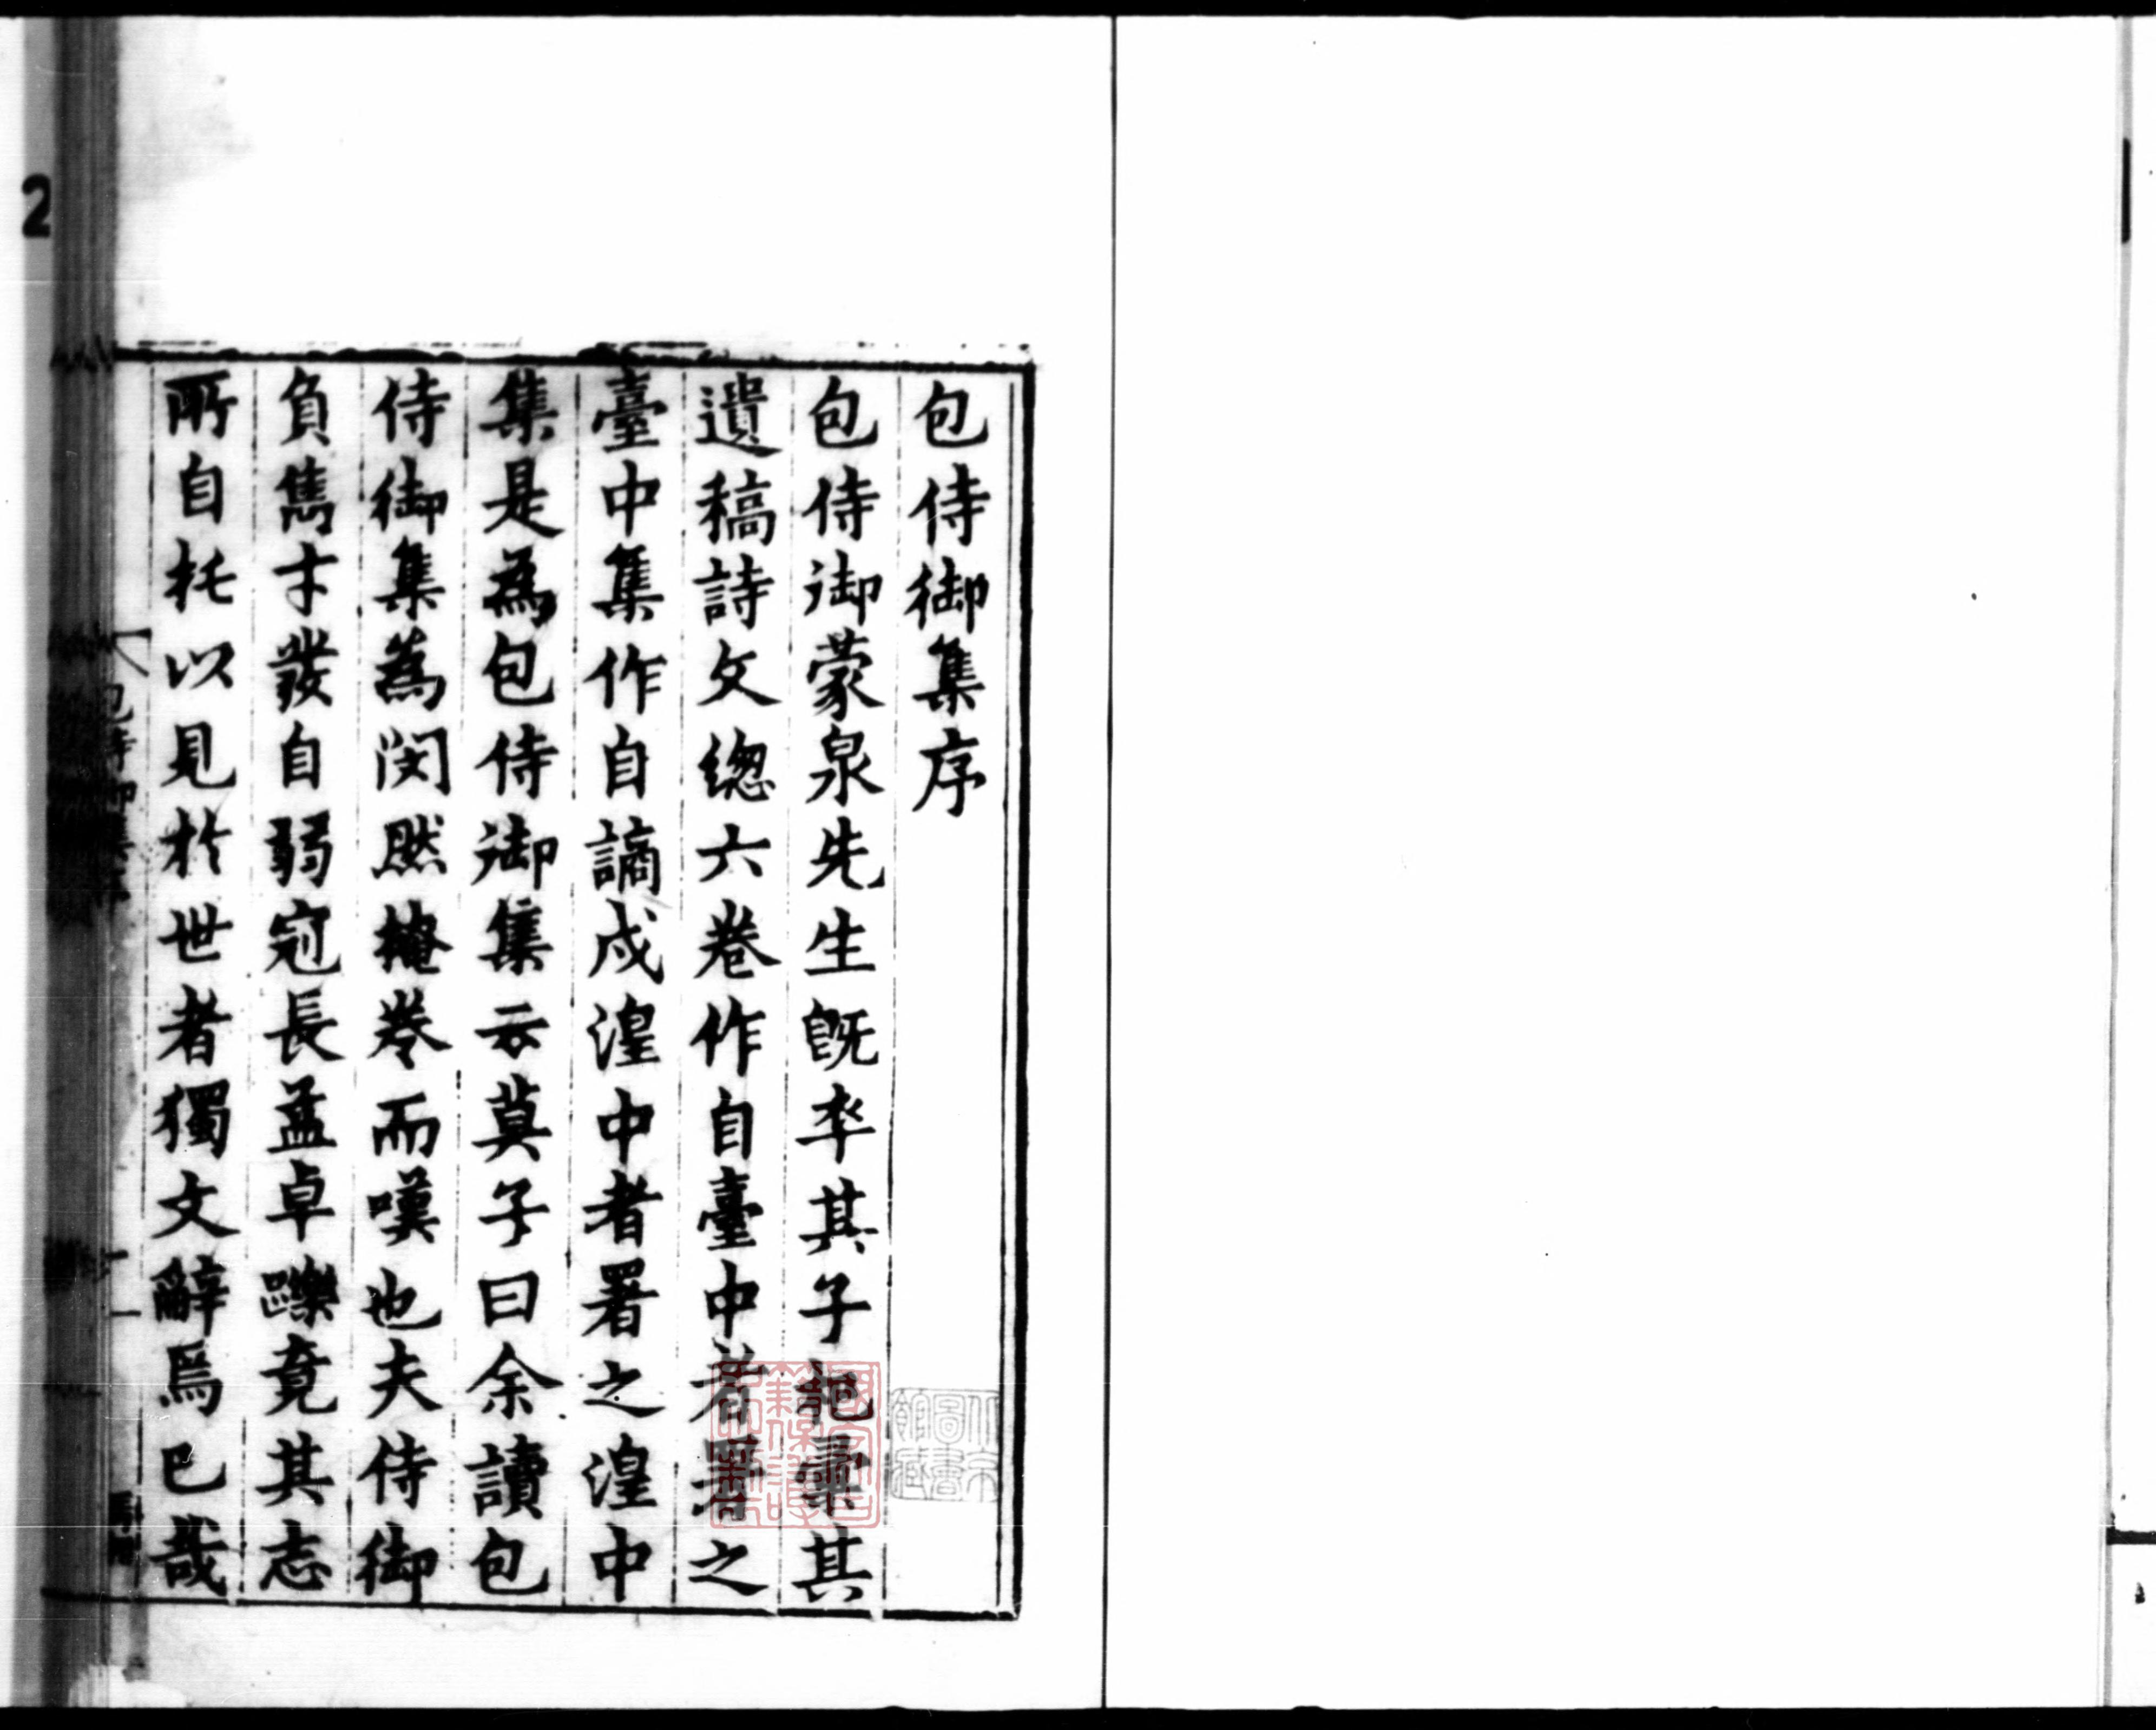 包侍御集序
包侍御蒙泉先生旣卒其子杞彙其
遺稿詩文總六卷作自臺中者署之
臺中集作自謫戍湟中者署之湟中
集是為包侍御集云莫子曰余讀包
侍御集為閔然掩卷而嘆也夫侍御
負雋才發自弱冠長益卓躒竟其志
所自托以見於世者獨文辭焉已哉
包侍御集序
一
2